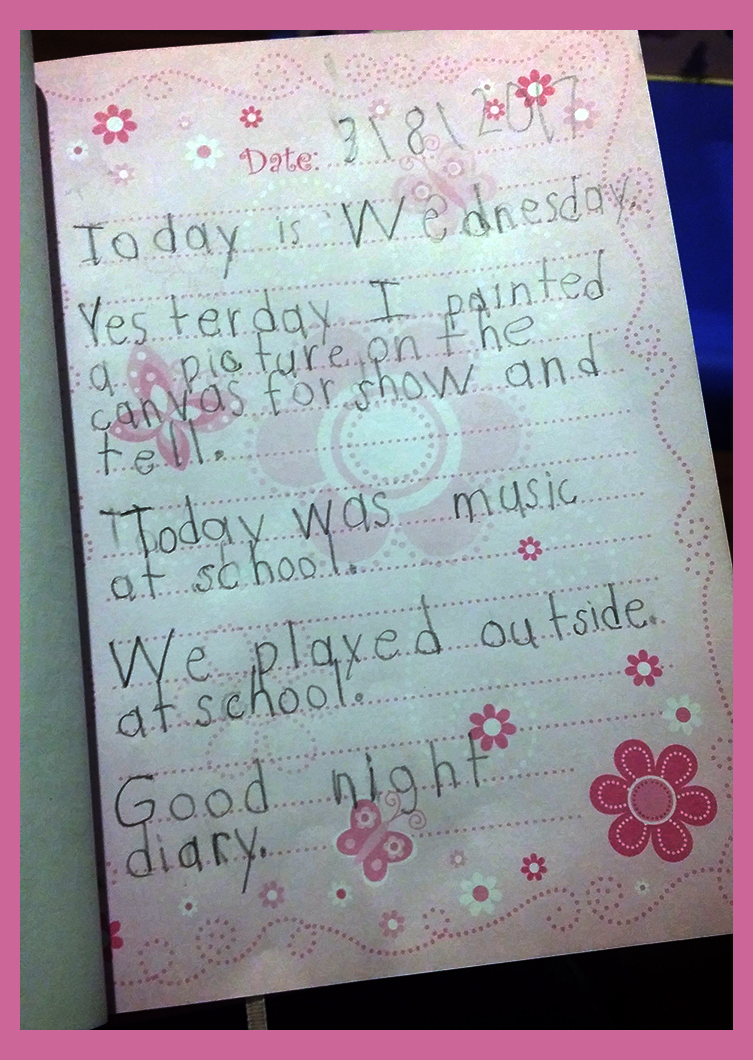 Date: 3/8/2017
Today is Wednesday.
Yesterday I painted
a picture on the
canvas for show and
tell.
Today was music
at school.
We played outside.
at school.
Good night
diary.